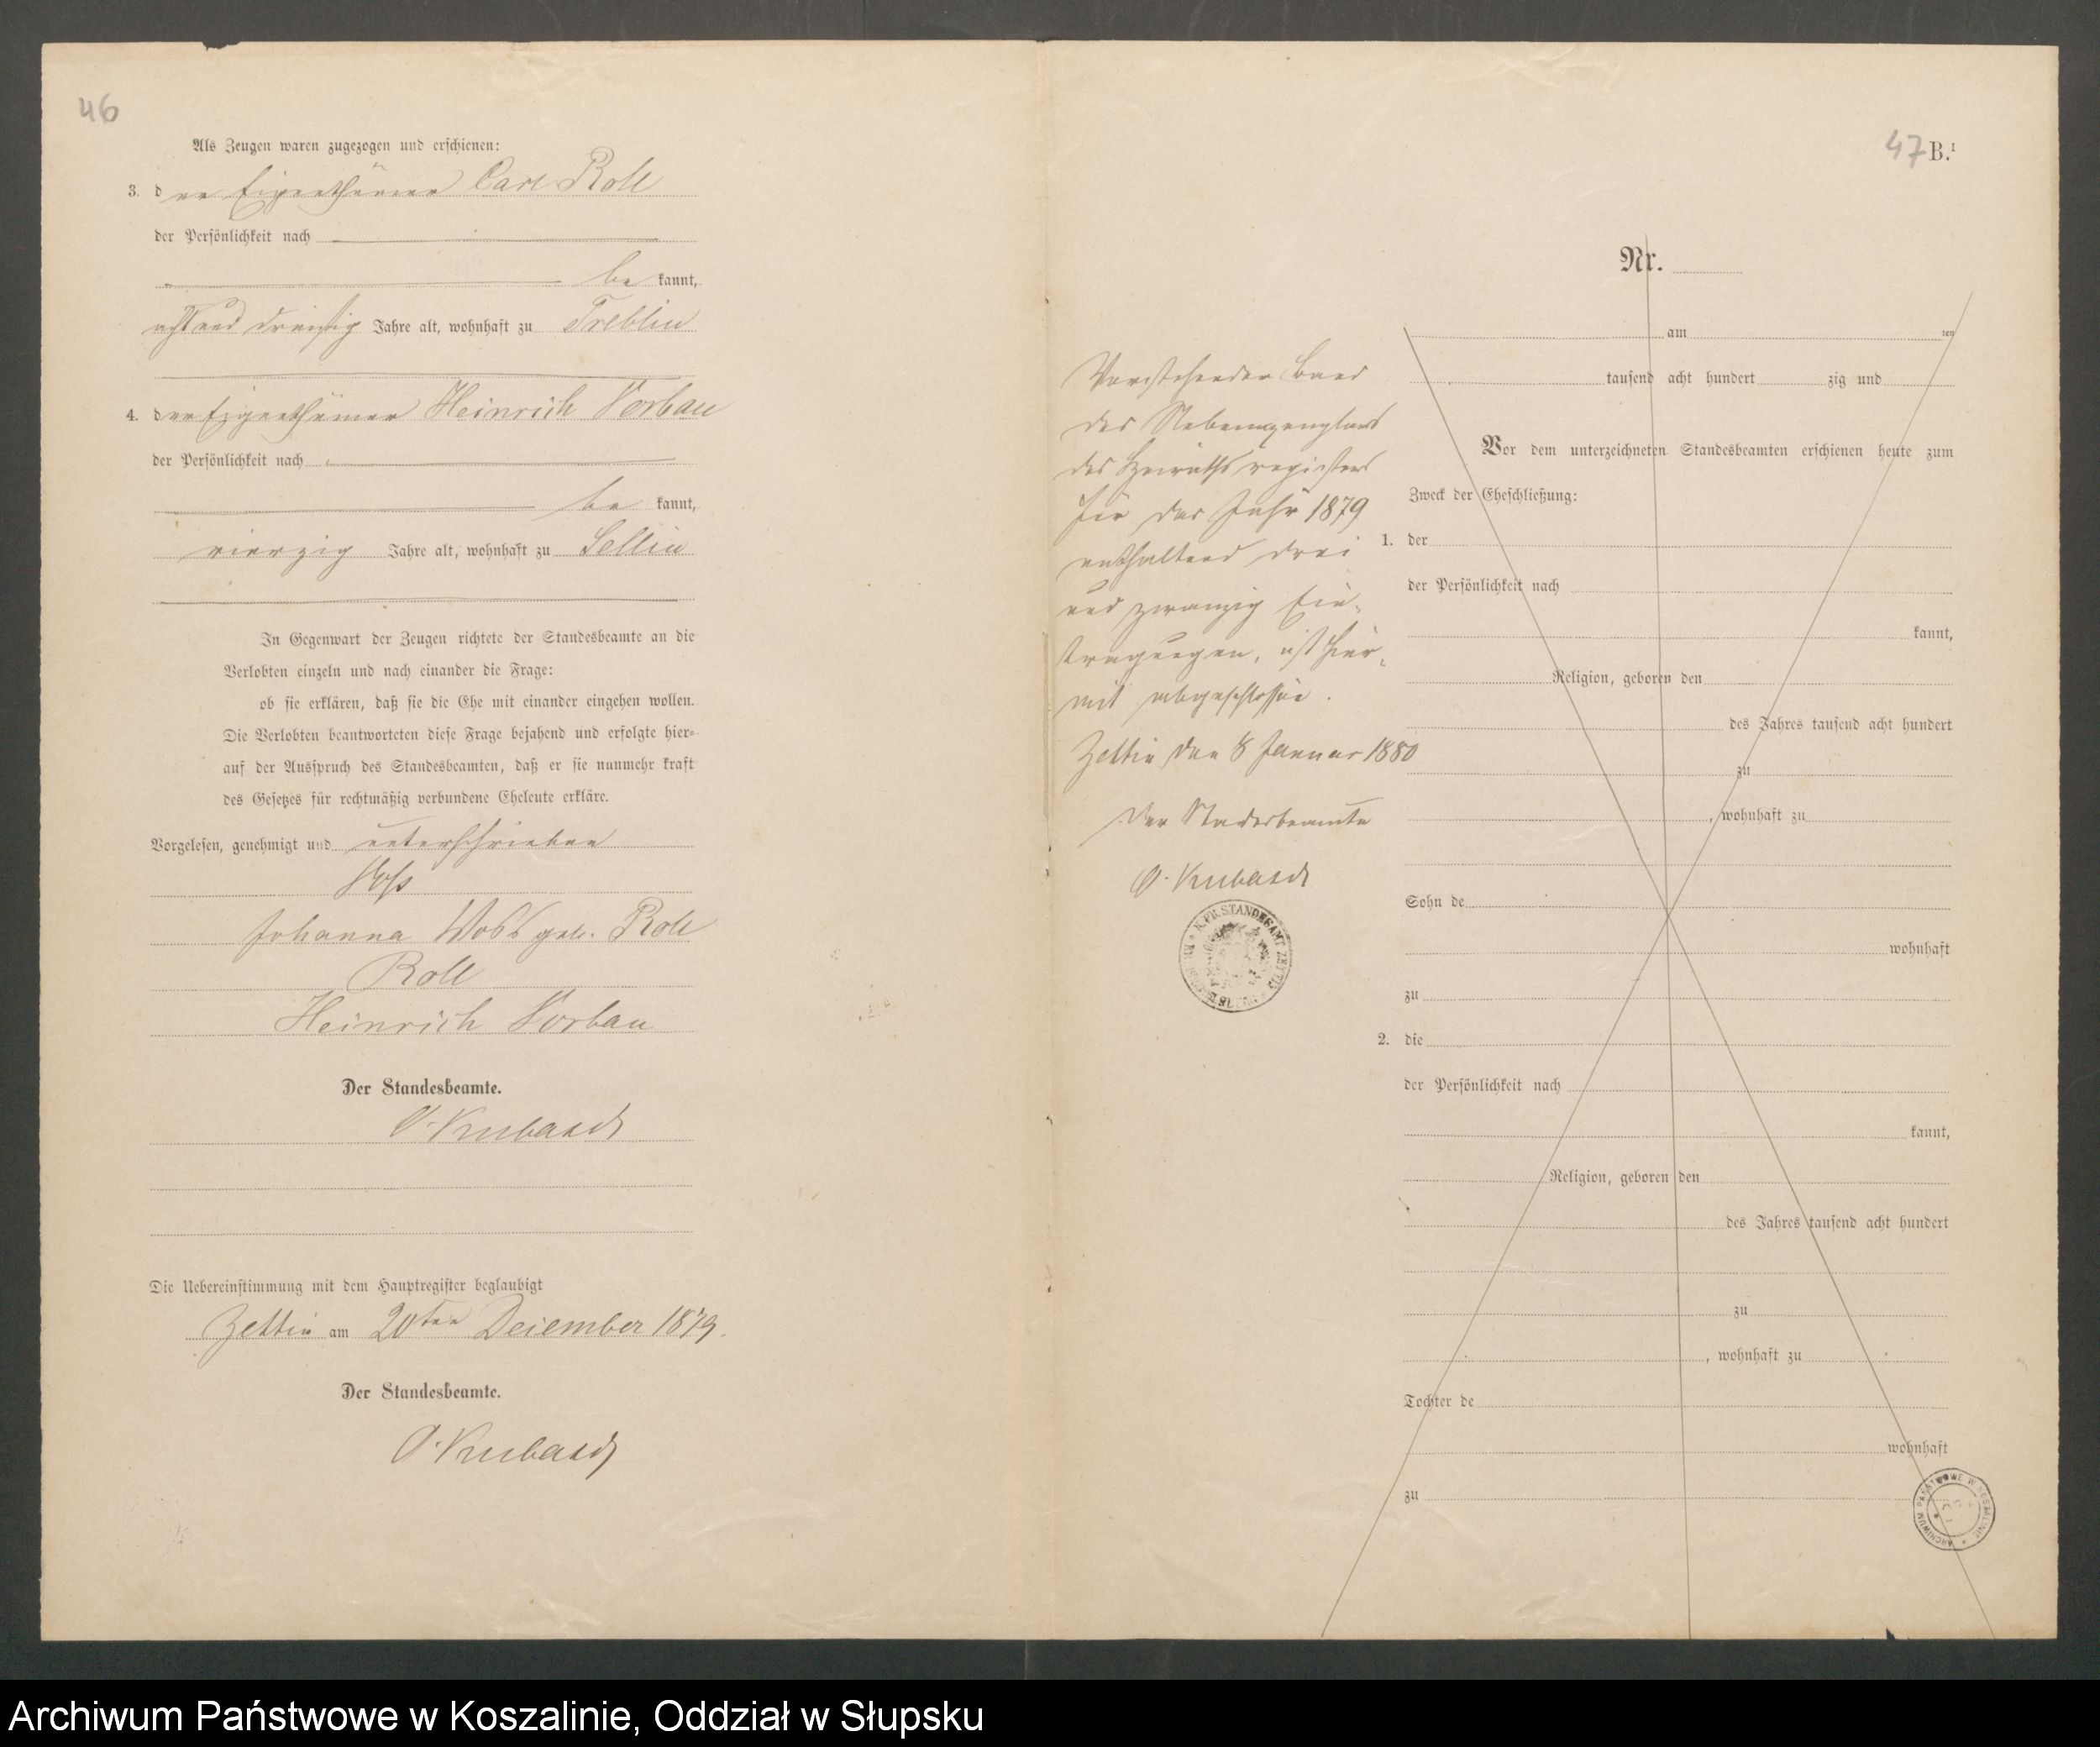 46
Als Zeugen waren zugezogen und erschienen:
3. der Eigenthümer Carl Roll
der Persönlichkeit nach
be kannt,
acht und dreißig Jahre alt, wohnhaft zu Treblin
4. der Eigenthümer Heinrich Vorbau
der Persönlichkeit nach
be kannt,
vierzig Jahre alt, wohnhaft zu Sellin
In Gegenwart der Zeugen richtete der Standesbeamte an die
Verlobten einzeln und nach einander die Frage:
ob sie erklären, daß sie die Ehe mit einander eingehen wollen.
Die Verlobten beantworteten diese Frage bejahend und erfolgte hier-
auf der Ausspruch des Standesbeamten, daß er sie nunmehr kraft
des Gesetzes für rechtmäßig verbundene Eheleute erkläre.
Vorgelesen, genehmigt und unterschrieben
Johanna geb. Roll
Roll
Heinrich Vorbau
Der Standesbeamte.
Die Uebereinstimmung mit dem Hauptregister beglaubigt
Zettin am 20ten Dezember 1879.
Der Standesbeamte.
47 B.¹
Vorstehender Band
des Nebenexemplars
des Heirathsregisters
für das Jahr 1879
enthaltend drei
und zwanzig Ein-
tragungen, ist hier-
mit abgeschlossen.
Zettin den 8 Januar 1880
Der Standesbeamte
K. PR. STANDESAMT ZETTIN
Nr.
am ten
tausend acht hundert zig und
Vor dem unterzeichneten Standesbeamten erschienen heute zum
Zweck der Eheschließung:
1. der
der Persönlichkeit nach
kannt,
Religion, geboren den
des Jahres tausend acht hundert
zu
, wohnhaft zu
Sohn de
wohnhaft
zu
2. die
der Persönlichkeit nach
kannt,
Religion, geboren den
des Jahres tausend acht hundert
zu
, wohnhaft zu
Tochter de
wohnhaft
zu
ARCHIWUM PAŃSTWOWE W KOSZALINIE
Archiwum Państwowe w Koszalinie, Oddział w Słupsku